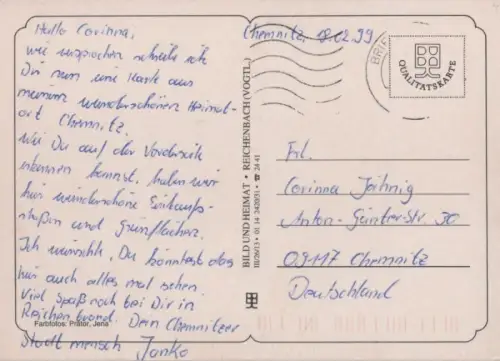 Hallo Corinna,
wie versprochen schreibe ich
Dir nun eine Karte aus
meinem wunderschönen Heimat-
ort Chemnitz.
Wie Du auf der Vorderseite
erkennen kannst, haben wir
hier wunderschöne Einkaufs-
straßen und Grünflächen.
Ich wünschte, Du könntest das
hier auch alles mal sehen
Viel Spaß noch bei Dir in
Reichenbrand. Dein Chemnitzer
Stadtmensch Janko
Farbfotos: Prätor, Jena
BILD UND HEIMAT · REICHENBACH (VOGTL.)
III/26/13 · 01 14 3420931 · ☎ 24 41
Chemnitz, 8.02.99
BRIE
QUALITÄTSKARTE
Frl.
Corinna Jähnig
Anton-Günther-Str. 30
09117 Chemnitz
Deutschland